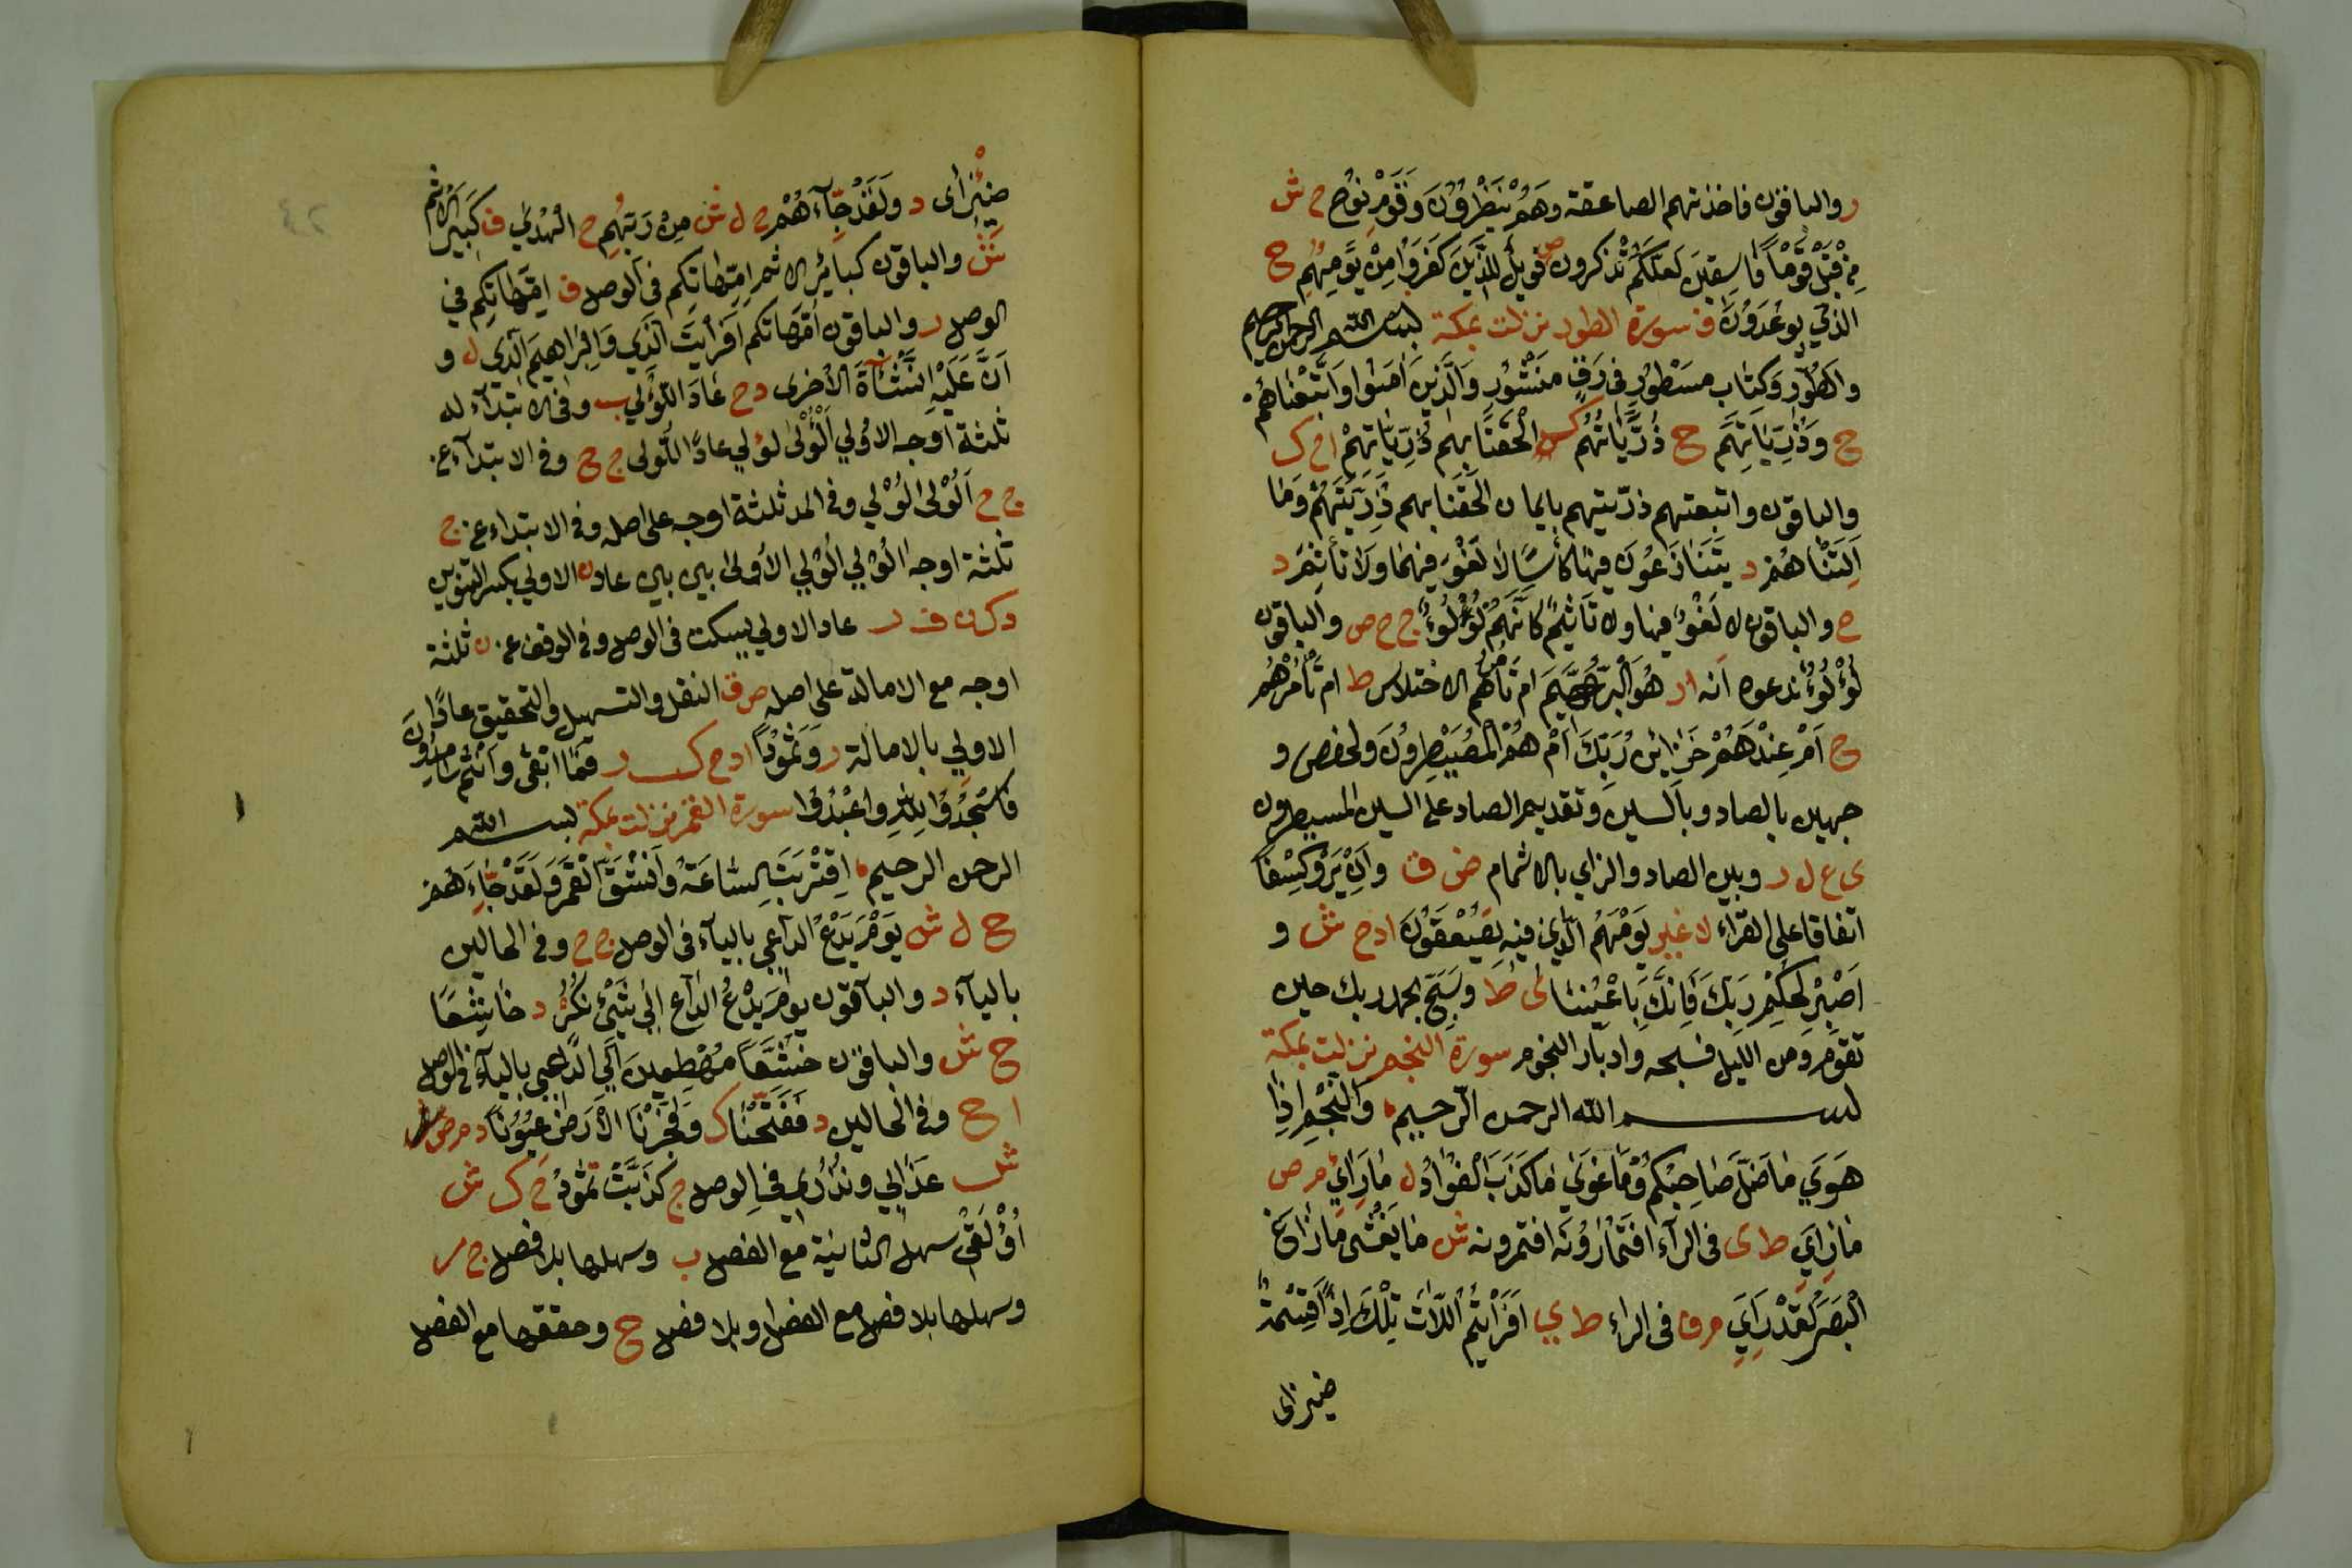 ر والباقون فاخذتهم الصاعقة وهم ينظرون وقوم نوح ح ش
من قبل قوما فاسقين لعلكم تذكرون ص فويل للذين كفروا من يومهم ح
الذي يوعدون ف سورة الطور نزلت بمكة بسم الله الرحمن الرحيم
والطور وكتاب مسطور في رق منشور والذين امنوا واتبعناهم
ح وذرياتهم ح ذرياتهم ك الحقنا بهم ذرياتهم ا ح ك
والباقون واتبعتهم ذريتهم بايمان الحقنا بهم ذريتهم وما
التناهم د يتنازعون فيها كأسا لا لغو فيها ولا تأثيم د
ح والباقون لا لغو فيها ولا تأثيم كانهم لؤلؤ ج ح ص والباقون
لؤلؤ ندعوه انه ا ر هو البر الرحيم ام تأمرهم الاختلاس ط ام تأمرهم
ح ام عندهم خزائن ربك ام هم المصيطرون ولحفص و
جهين بالصاد وبالسين وتقديم الصاد على السين المسيطرون
ى ع ل ر وبين الصاد والزاي بالاشمام ض ق وان يروا كسفا
اتفاقا على القراء لا غير يومهم الذي فيه يصعقون ا د ح ش و
اصبر لحكم ربك فانك باعيننا لى ط وسبح بحمد ربك حين
تقوم ومن الليل فسبحه وادبار النجوم سورة النجم نزلت بمكة
بسم الله الرحمن الرحيم والنجم اذا
هوى ما ضل صاحبكم وما غوى ما كذب الفؤاد ل ما رأى م ص
ما رأى ط ى في الراء افتمارونه افتمرونه ش ما يغشى ما زاغ
البصر لقد رأى م ق في الراء ط ي افرأيتم اللات تلك اذا قسمة
ضيزى
ضئزى د ولقد جآءهم ح ل ش من ربهم ح الهدى ف كبير الاثم
ش والباقون كبائر الاثم امهاتكم في الوصل ف امهاتكم في
الوصل ر والباقون امهاتكم افرأيت الذي وابراهيم الذي ل و
ان عليه النشأة الاخرى د ح عاد اللؤلي ب وفي الابتدآء له
ثلثة اوجه الاولي الؤلى لؤلي عادا اللولى ج ح وفي الابتدآء عن
ج ح الولى لولي وفي المد ثلثة اوجه على اصله وفي الابتداء عن ج
ثلثة اوجه الولي لولي الاولى بين بين عادن الاولي بكسر التنوين
د ك ن ف ر عاد الاولي بسكت في الوصل وفي الوقف عن ن ثلثة
اوجه مع الامالة على اصله ص ق النقل والتسهيل والتحقيق عادا
الاولي بالامالة ر وثمودا ا د ح ك ر فما ابقى وانتم سامدون
فاسجدوا لله واعبدوا سورة القمر نزلت بمكة بسم الله
الرحمن الرحيم اقتربت الساعة وانشق القمر ولقد جاءهم
ح ل ش يوم يدع الداعي باليآء في الوصل ج ح وفي الحالين
باليآء د والباقون يوم يدع الداع الى شيء نكر د خاشعا
ح ش والباقون خشعا مهطعين الى الداعي باليآء في الوصل
ا ح وفي الحالين د ففتحنا ك وفجرنا الارض عيونا د م ص
ش عذابي ونذري في الوصل ج كذبت ثمود ح ك ش
اؤلقي سهل الثانية مع الفصل ب وسهلها بلا فصل ج ر
وسهلها بلا فصل مع الفصل وبلا فصل ح وحققها مع الفصل